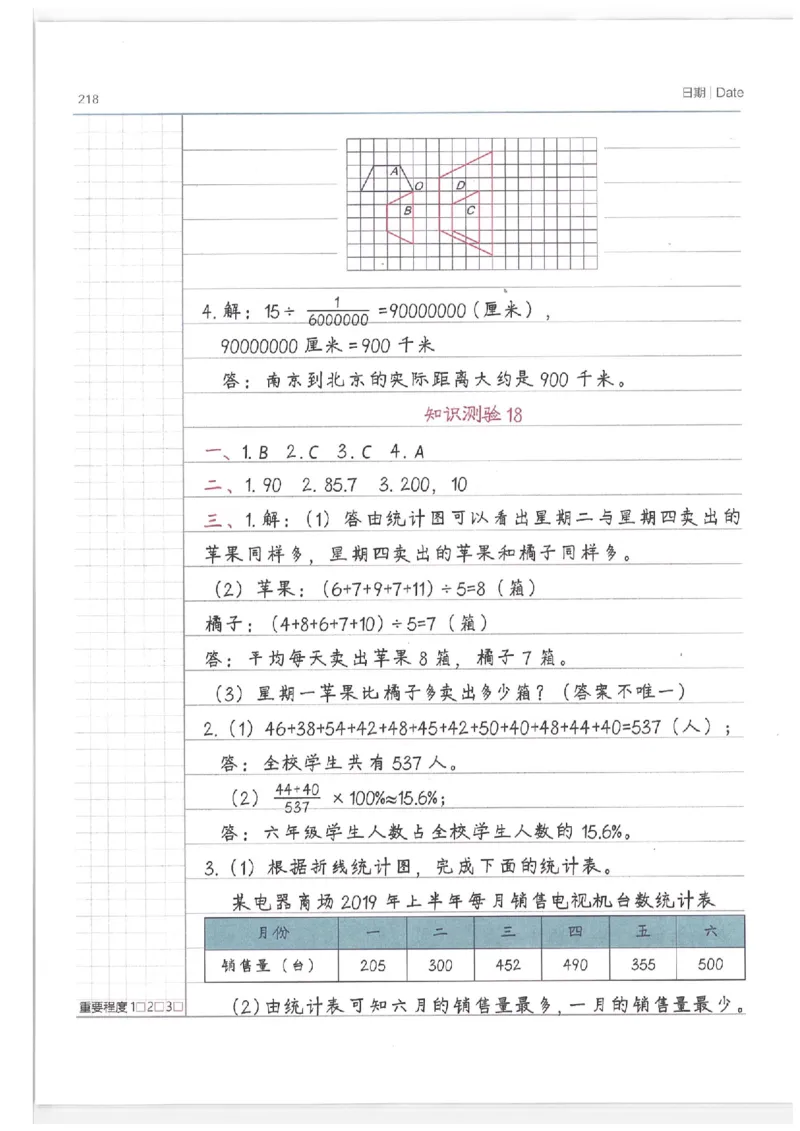 218
日期 | Date
A
O
D
B
C
4. 解：15÷ 1/6000000 =90000000（厘米），
90000000 厘米 =900 千米
答：南京到北京的实际距离大约是 900 千米。
知识测验18
一、1. B 2. C 3. C 4. A
二、1. 90 2. 85.7 3. 200，10
三、1. 解：（1）答由统计图可以看出星期二与星期四卖出的
苹果同样多，星期四卖出的苹果和橘子同样多。
（2）苹果：（6+7+9+7+11）÷5=8（箱）
橘子：（4+8+6+7+10）÷5=7（箱）
答：平均每天卖出苹果 8 箱，橘子 7 箱。
（3）星期一苹果比橘子多卖出多少箱？（答案不唯一）
2.（1）46+38+54+42+48+45+42+50+40+48+44+40=537（人）；
答：全校学生共有 537 人。
（2） 44+40/537 ×100%≈15.6%；
答：六年级学生人数占全校学生人数的 15.6%。
3.（1）根据折线统计图，完成下面的统计表。
某电器商场 2019 年上半年每月销售电视机台数统计表
月份 一 二 三 四 五 六
销售量（台） 205 300 452 490 355 500
（2）由统计表可知六月的销售量最多，一月的销售量最少。
重要程度 1□2□3□